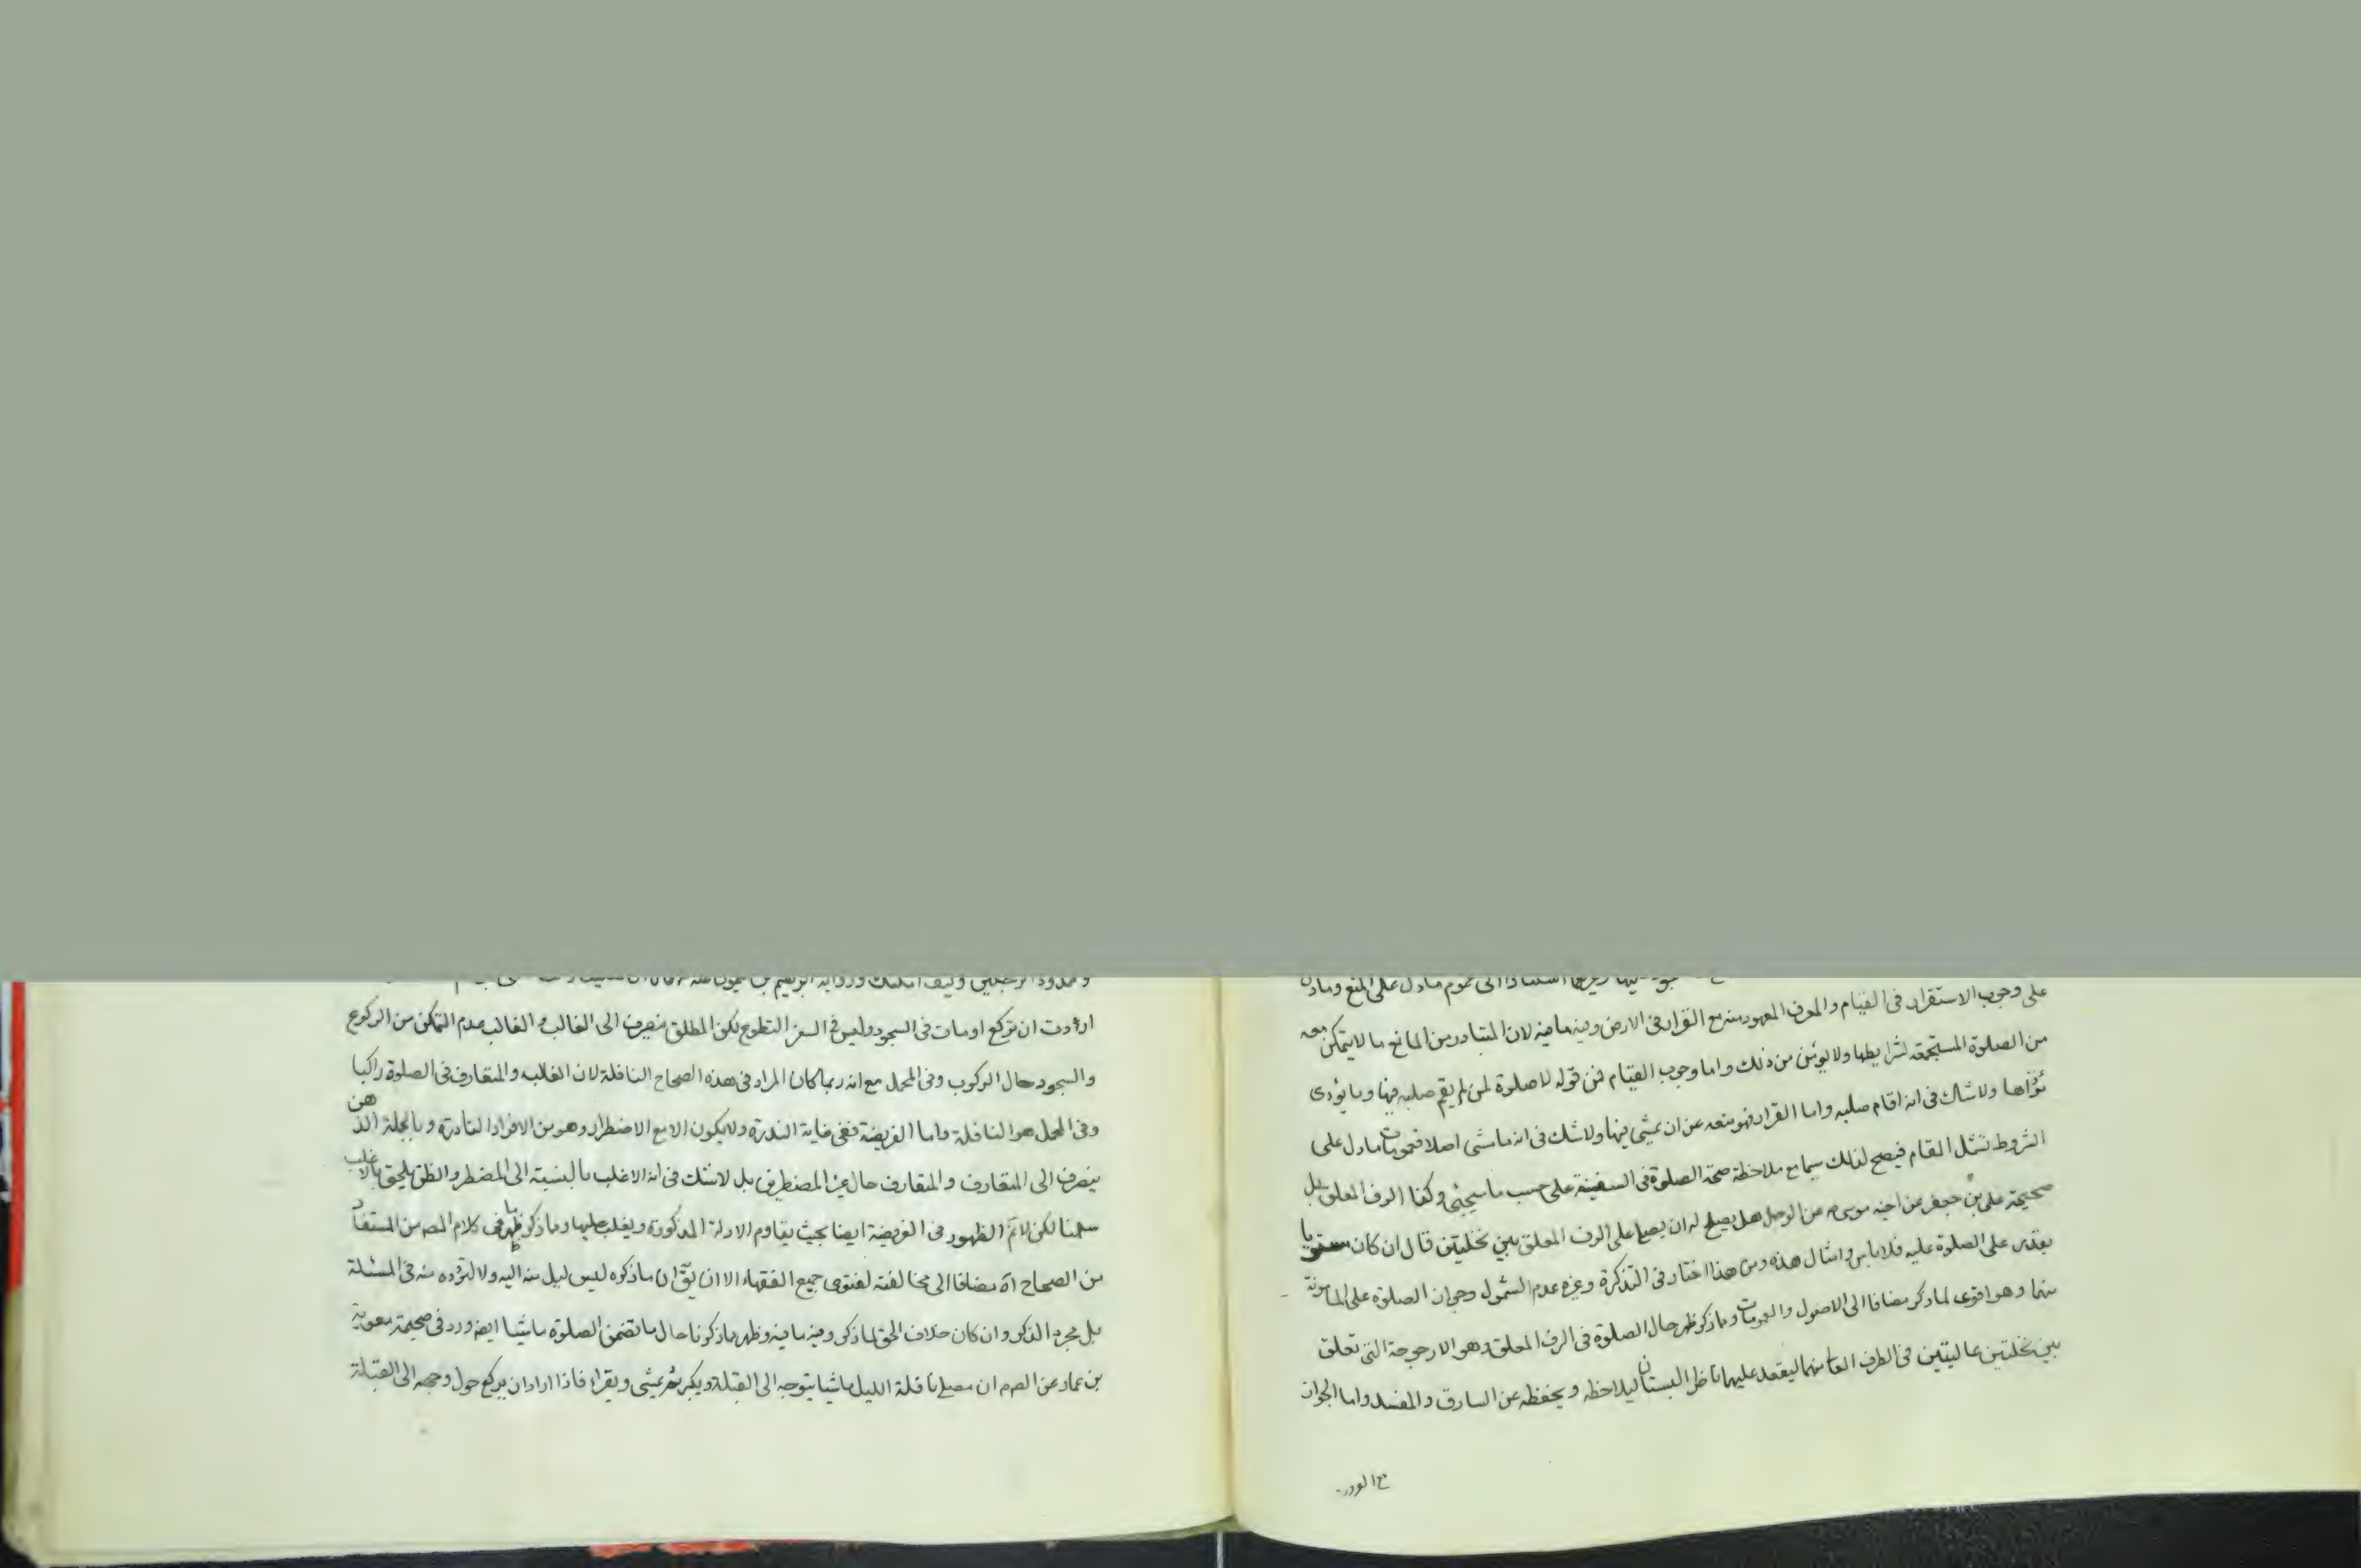 على وجوب الاستقرار فى القيام والمعرف المعهود منه مع القرار فى الارض وفيه ما فيه لان المتبادر من المانع ما لا يتمكن معه
من الصلوة المستجمعة لشرايطها ولا يؤمن من ذلك واما وجوب القيام فمن قوله لا صلوة لمن لم يقم صلبه فيها وما يؤدى
مؤداها ولا شك فى انه اقام صلبه واما القرار فهو منعه عن ان يمشى فيها ولا شك فى انه ما مشى اصلا فعمومات ما دل على
الشروط تشمل المقام فيصح لذلك سيما مع ملاحظة صحة الصلوة فى السفينة على حسب ما سيجئ وكذا الرف المعلق بل
صحيحة على بن جعفر عن اخيه موسى ع عن الرجل هل يصلح له ان يصلى على الرف المعلق بين نخلتين قال ان كان مستويا
يقدر على الصلوة عليه فلا باس وامثال هذه ومن هذا اختار فى التذكرة وغيره عدم الشمول وجواز الصلوة على المامونة
منهما وهو اقوى لما ذكر مضافا الى الاصول والعمومات ومما ذكر ظهر حال الصلوة فى الرف المعلق وهو الارجوحة التى تعلق
بين نخلتين عاليتين فى الطرف العالى منهما ليقعد عليها ناظر البستان ليلاحظه ويحفظه عن السارق والمفسد واما الجواز
اردت ان تركع اومات فى السجود وليس فى السفر التطوع لكن المطلق ينصرف الى الغالب والغالب عدم التمكن من الركوع
والسجود حال الركوب وفى المحمل مع انه ربما كان المراد فى هذه الصحاح النافلة لان الغالب والمتعارف فى الصلوة راكبا
وفى المحمل هو النافلة واما الفريضة ففى غاية الندرة ولا يكون الا مع الاضطرار وهو من الافراد النادرة وبالجملة الذهن
ينصرف الى المتعارف والمتعارف حال غير المضطرين بل لا شك فى انه الاغلب بالنسبة الى المضطر والظن يلحق بالاغلب
سلمنا لكن لانم الظهور فى الفريضة ايضا بحيث يقاوم الادلة المذكورة ويغلب عليها ومما ذكر ظهر ما فى كلام المص من المستفاد
من الصحاح آه مضافا الى مخالفته لفتوى جميع الفقهاء الا ان يق ان ما ذكره ليس لميل منه اليه ولا لتردده منه فى المسئلة
بل مجرد الذكر وان كان خلاف الحق لما ذكر وفيه ما فيه وظهر مما ذكرنا حال ما تضمن الصلوة ماشيا ايضا ورد فى صحيحة معوية
بن عمار عن الص ع ان يصلى نافلة الليل ماشيا يتوجه الى القبلة ويكبر ثم يمشى ويقرا فاذا اراد ان يركع حول وجهه الى القبلة